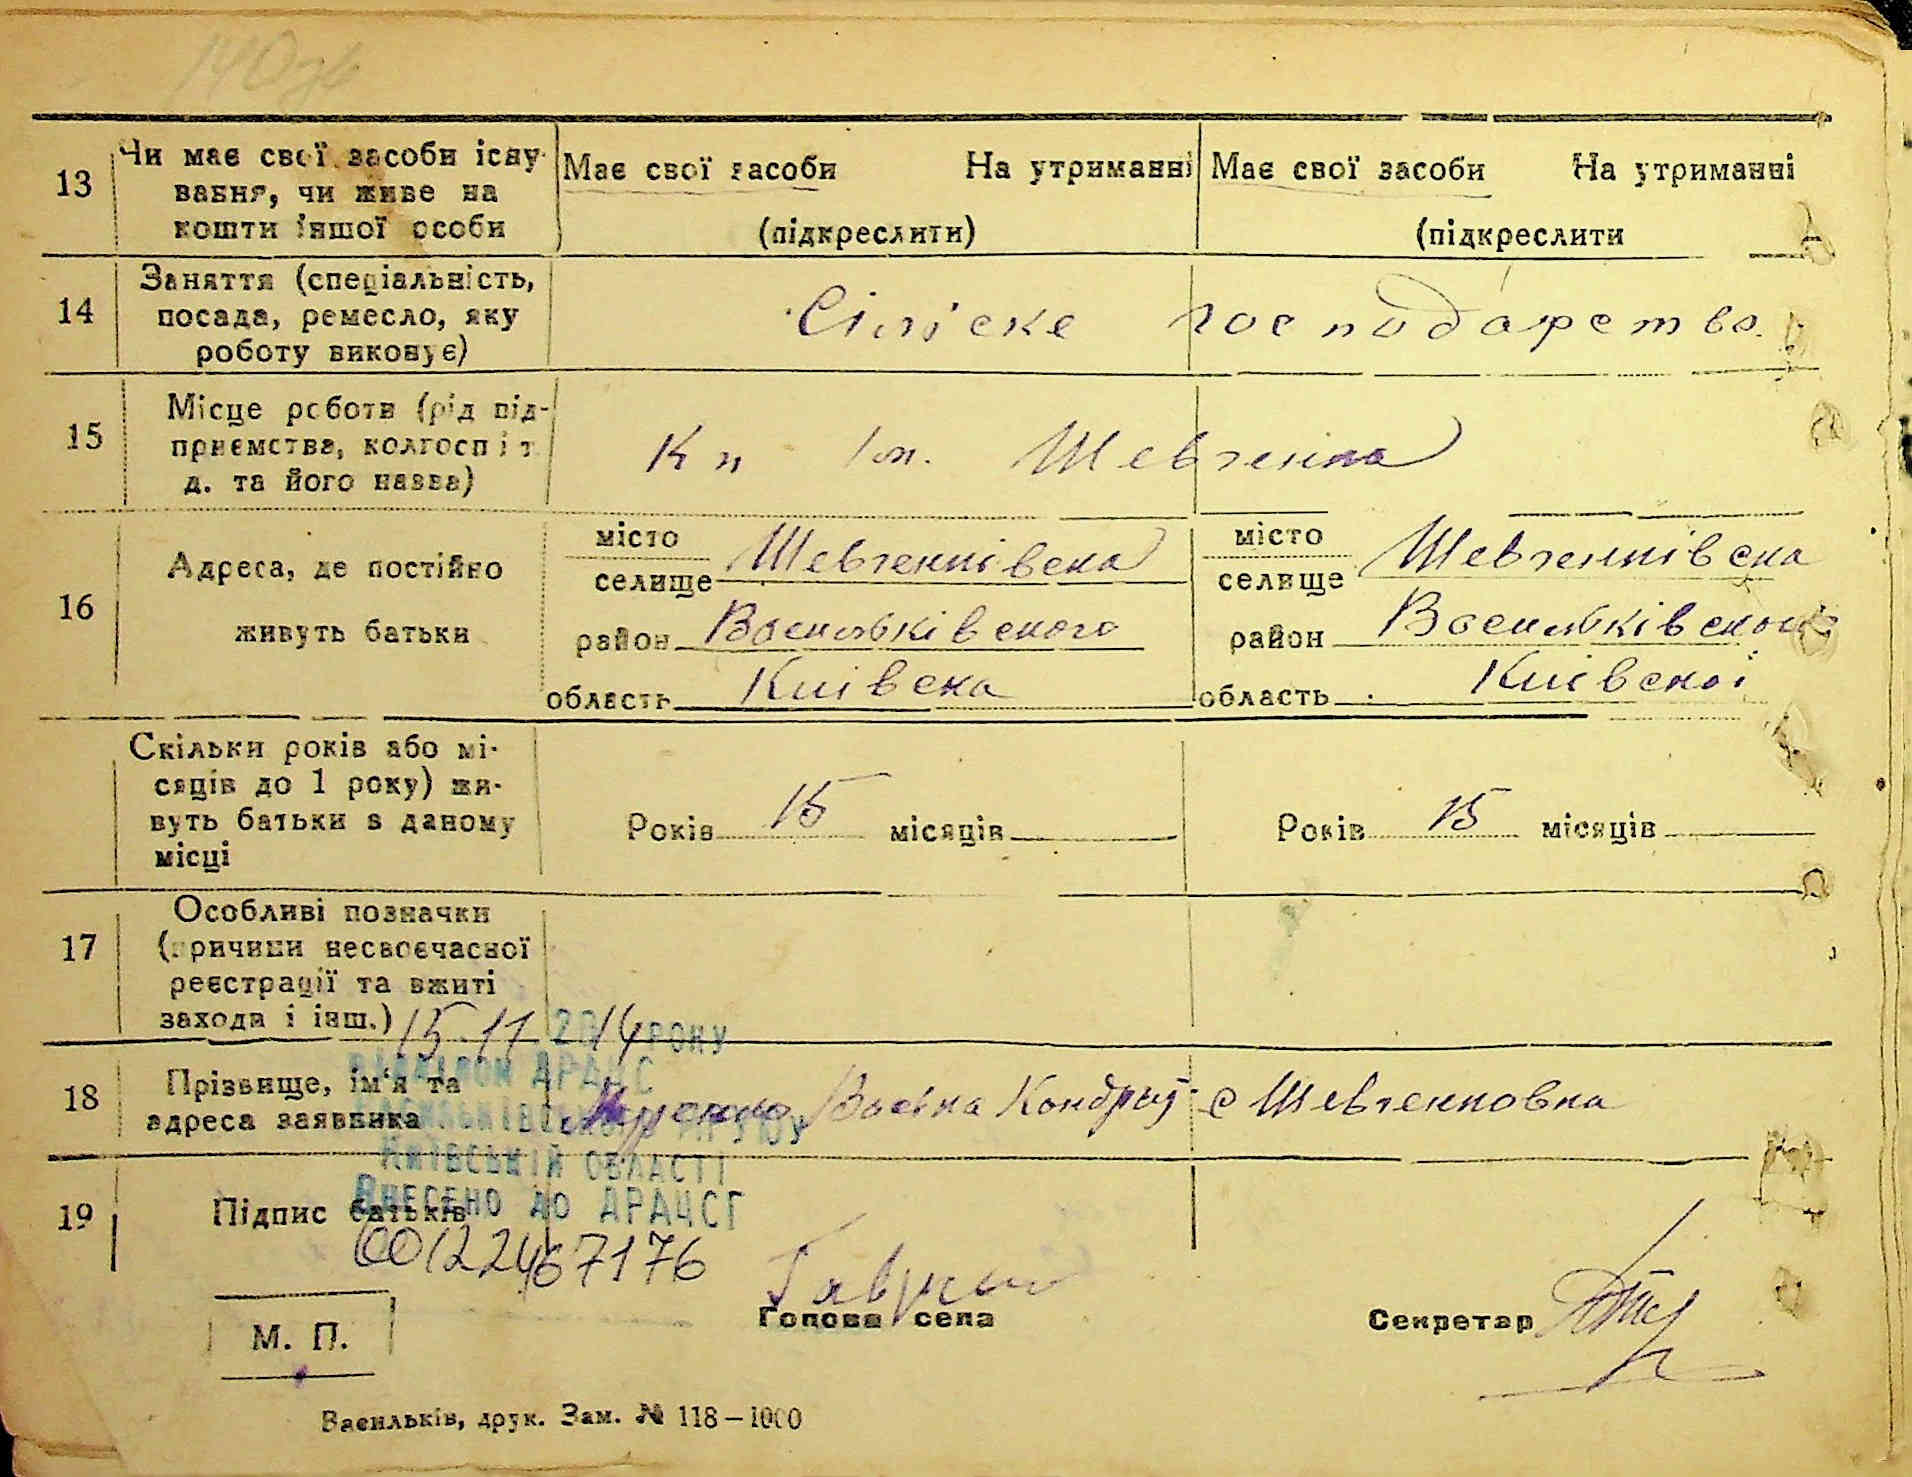 13 Чи має свої засоби існу-
вання, чи живе на
кошти іншої особи
Має свої засоби На утриманні
(підкреслити)
Має свої засоби На утриманні
(підкреслити
14 Заняття (спеціальність,
посада, ремесло, яку
роботу виконує)
Сільске господарство
15 Місце роботи (рід під-
приємства, колгосп і т.
д. та його назва)
Кп ім. Шевченка
16 Адреса, де постійно
живуть батьки
місто
селище Шевченківска
район Васильківского
область Київска
місто
селище Шевченківска
район Васильківского
область Київскої
Скільки років або мі-
сяців до 1 року) жи-
вуть батьки в даному
місці
Років 15 місяців
Років 15 місяців
17 Особливі позначки
(причини несвоєчасної
реєстрації та вжиті
заходи і інш.)
15.11 2014 РОКУ
ВІДДІЛОМ ДРАЦС
ВАСИЛЬКІВСЬКОГО МРУЮ У
КИЇВСЬКІЙ ОБЛАСТІ
ВНЕСЕНО ДО ДРАЦСГ
00122467176
18 Прізвище, ім'я та
адреса заявника
с Шевченковка
19 Підпис батьків
М. П.
Голова села
Секретар
Васильків, друк. Зам. № 118–1000